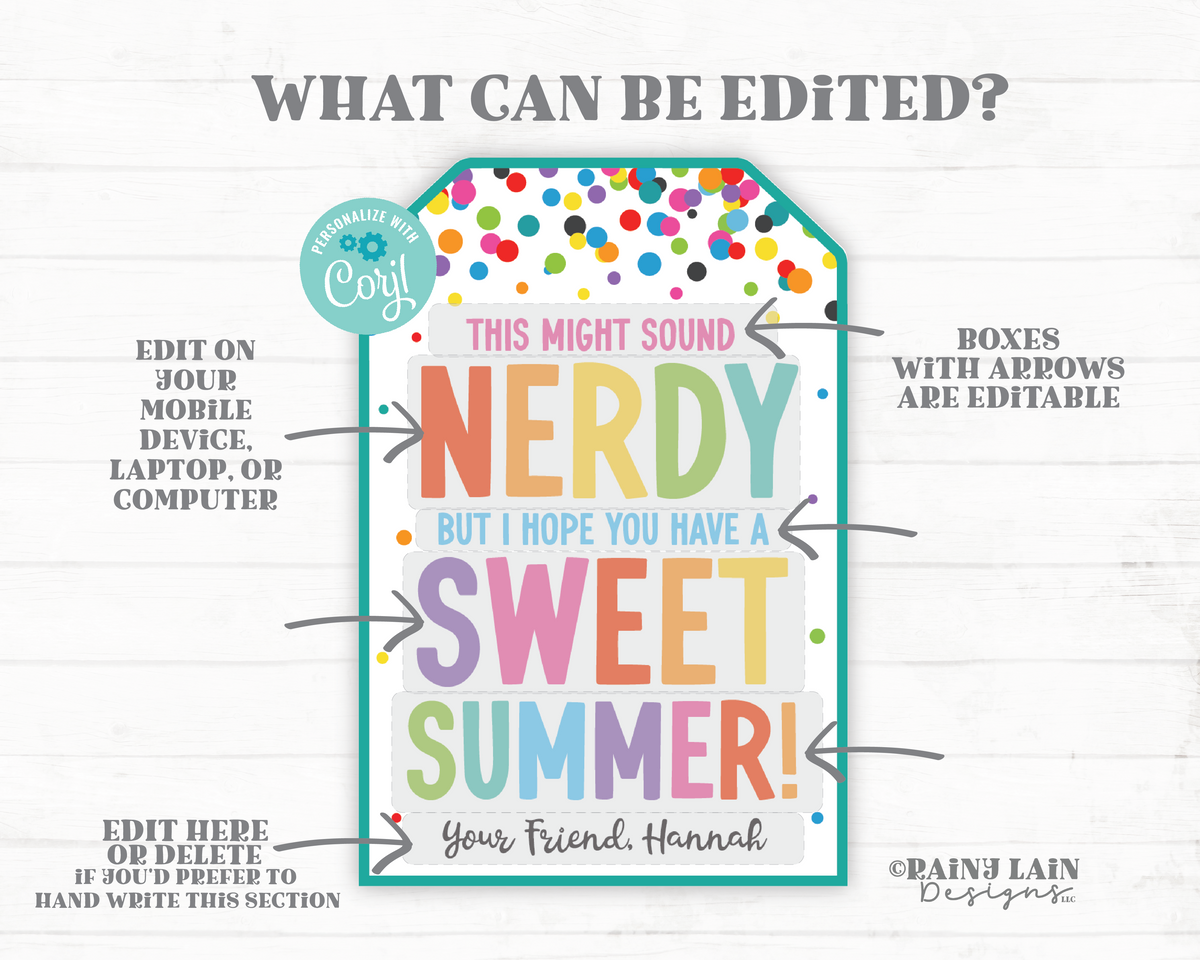 WHAT CAN BE EDiTED?
PERSONALIZE WITH
Corjl
EDIT ON
YOUR
MOBiLE
DEViCE,
LAPTOP, OR
COMPUTER
BOXES
WiTH ARROWS
ARE EDiTABLE
THIS MIGHT SOUND
NERDY
BUT I HOPE YOU HAVE A
SWEET
SUMMER!
Your Friend, Hannah
EDIT HERE
OR DELETE
iF YOU'D PREFER TO
HAND WRiTE THiS SECTiON
©RAiNY LAiN
Designs LLC